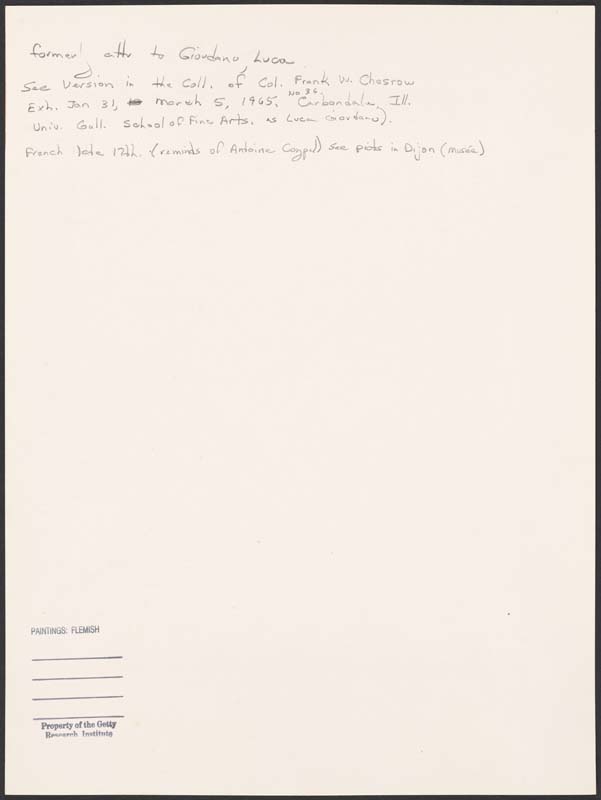 formerly attr to Giordano, Luca
See Version in the Coll. of Col. Frank W. Chesrow
Exh. Jan 31, March 5, 1965, No 36. Carbondale, Ill.
Univ. Gall. School of Fine Arts, as Luca Giordano).
French late 17th. (reminds of Antoine Coypel) see picts in Dijon (musée)
PAINTINGS: FLEMISH
Property of the Getty
Research Institute